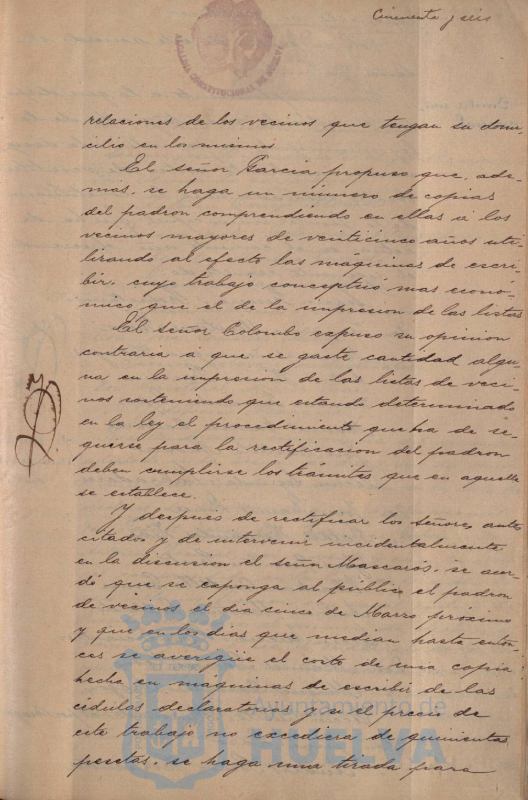 Cincuenta y seis
ALCALDIA CONSTITUCIONAL DE HUELVA
relaciones de los vecinos que tengan su domi-
cilio en los mismos
El señor Garcia propuso que, ade-
mas, se haga un número de copias
del padron comprendiendo en ellas a los
vecinos mayores de veinticinco años uti-
lizando al efecto las máquinas de escri-
bir, cuyo trabajo conceptuo mas econó-
mico que el de la impresion de las listas
El señor Colombo expuso su opinion
contraria a que se gaste cantidad algu-
na en la impresion de las listas de veci-
nos sosteniendo que estando determinado
en la ley el procedimiento que ha de se-
guirse para la rectificacion del padron
deben cumplirse los trámites que en aquella
se establece.
Y después de rectificar los señores ante
citados y de intervenir incidentalmente
en la discusion el señor Mascarós, se acor-
dó que se exponga al público el padron
de vecinos el dia cinco de Marzo próximo
y que en los dias que median hasta enton-
ces se averigüe el costo de una copia
hecha en máquinas de escribir de las
cédulas declaratorias y si el precio de
este trabajo no excediera de quinientas
pesetas, se haga una tirada para
Ayuntamiento de
HUELVA